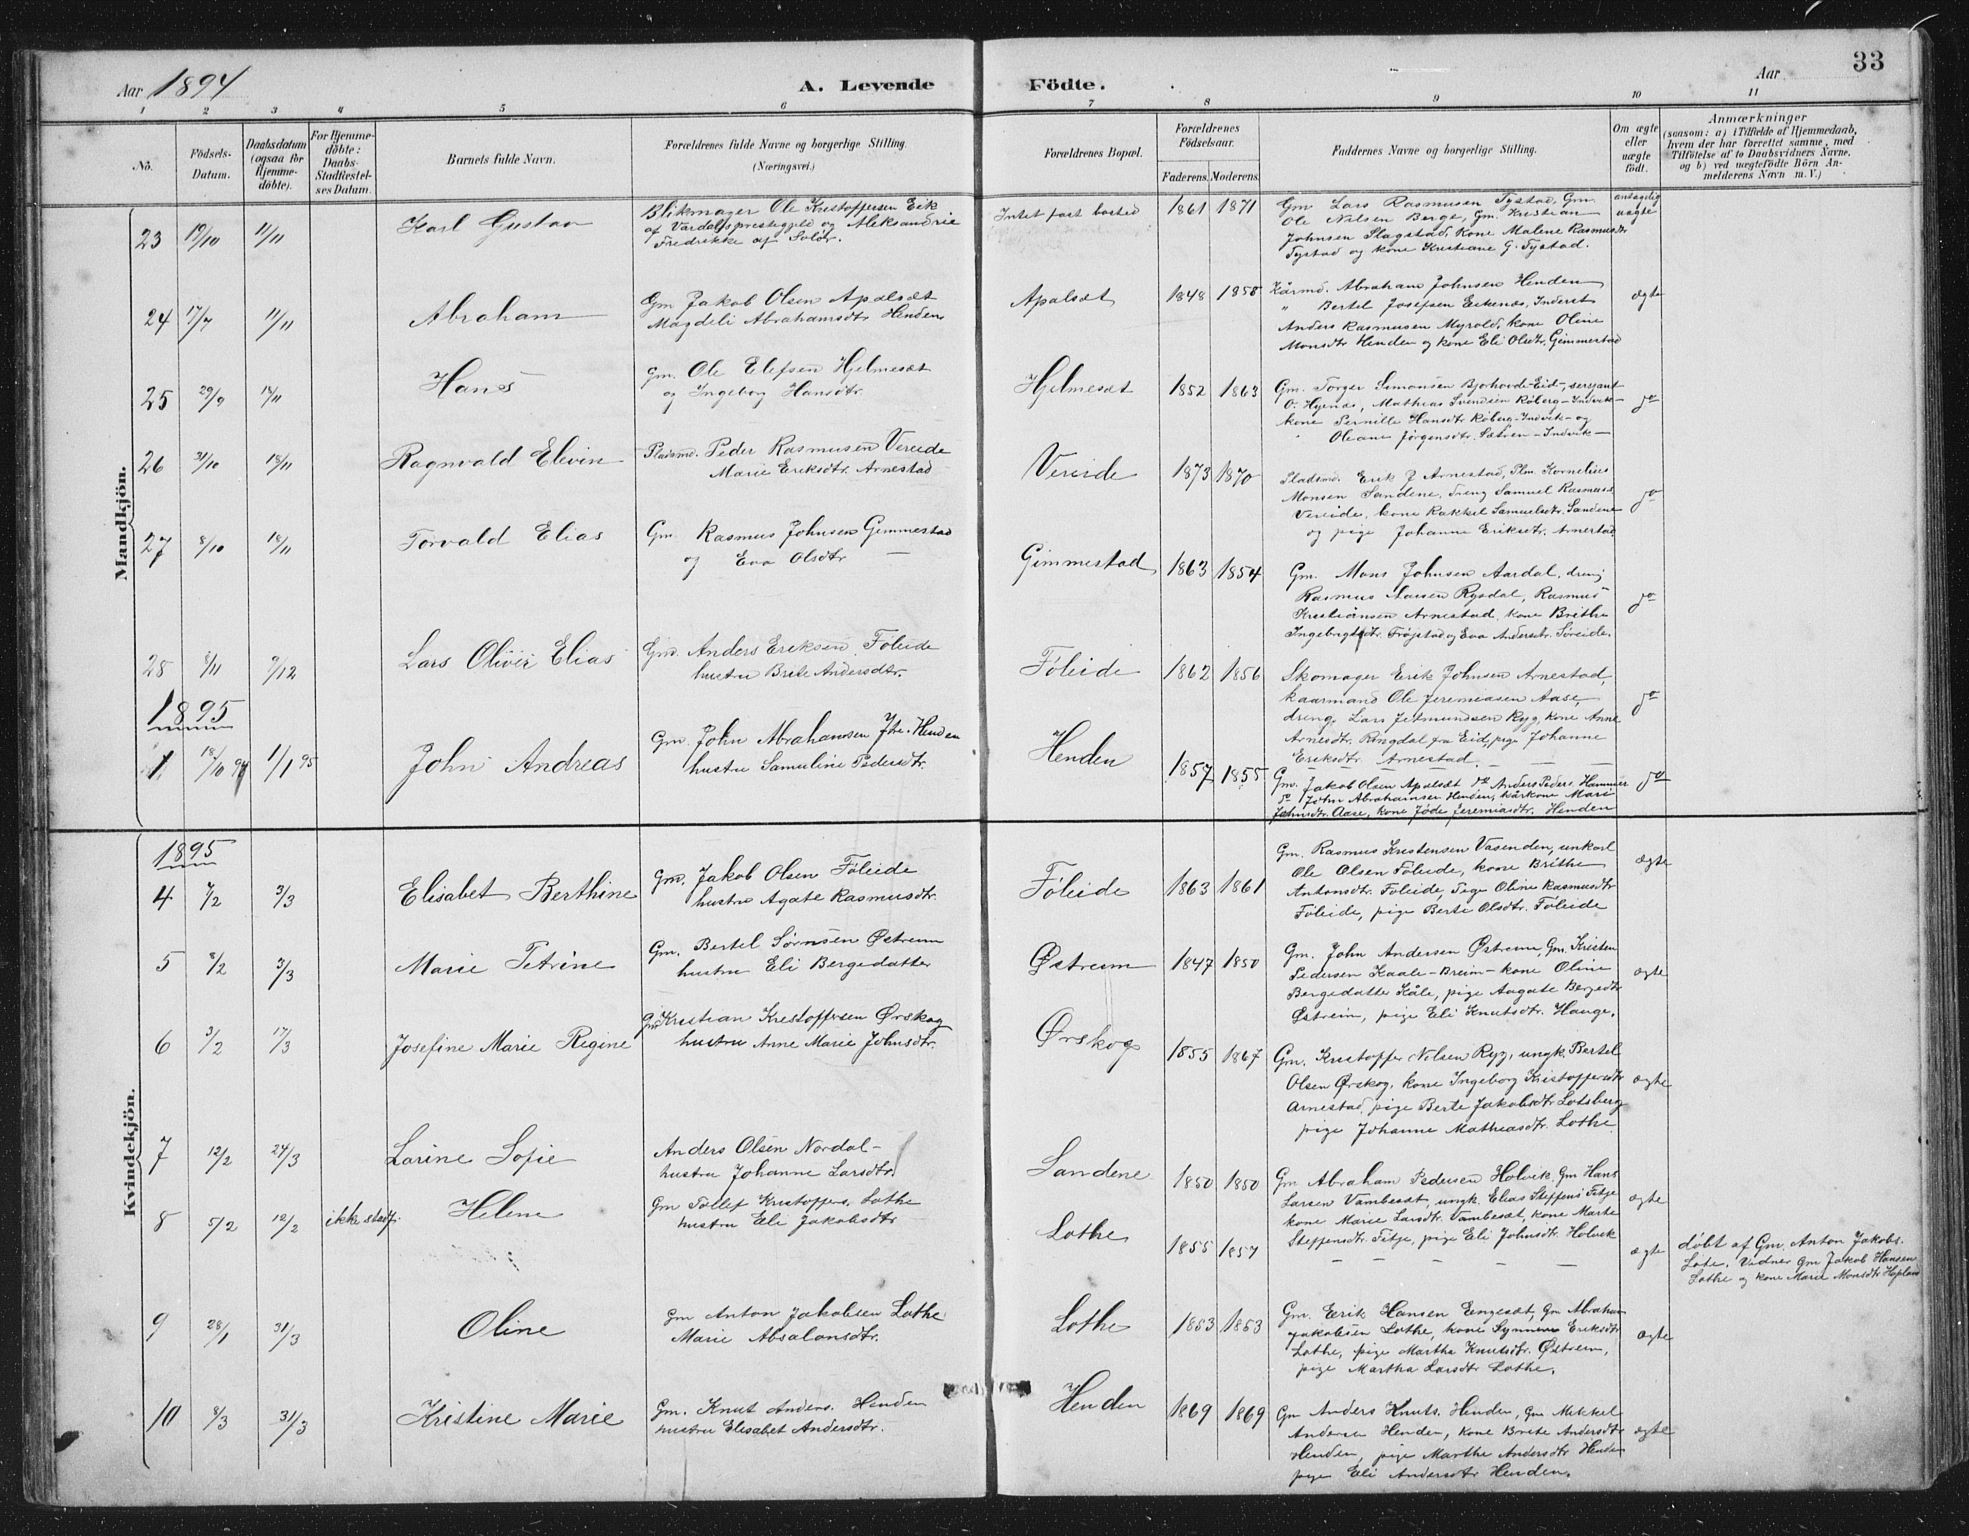 33
Aar 1894
A. Levende Födte.
Aar
1 2 3 4 5 6 7 8 9 10 11
No.
Födsels-Datum.
Daabsdatum (ogsaa for Hjemmedöbte).
For Hjemmedöbte: Daabs-Stadfæstelses Datum.
Barnets fulde Navn.
Forældrenes fulde Navne og borgerlige Stilling.
(Næringsvei.)
Forældrenes Bopæl.
Forældrenes Födselsaar.
Faderens. Moderens.
Faddernes Navne og borgerlige Stilling.
Om ægte eller uægte födt.
Anmærkninger
(saasom: a) i Tilfælde af Hjemmedaab,
hvem der har forrettet samme, med
Tilföielse af to Daabsvidners Navne,
og b) ved uægtefödte Börn An-
melderens Navn m. V.)
Mandkjön.
23 19/10 11/11 Karl Gustav
Blikmager Ole Kristoffersen Eik
af Værdals præstegjeld og Aleksandrie
Fredrikke af Solør.
Intet fast bosted 1861 1871
Gm Lars Rasmusen Tystad, Gm.
Ole Nilsen Berge, Gm. Kristian
Johnsen Slagstad, kone Malene Rasmusdtr
Tystad og kone Kristiane G. Tystad.
uægte
24 17/7 11/11 Abraham
Gm Jakob Olsen Apalsæt
Magdeli Abrahamsdtr Henden
Apalsæt 1848 1858
Kårmd. Abraham Johnsen Henden
" Bertel Josefsen Eikenæs, Inderst
Anders Rasmusen Myrold, kone Oline
Monsdtr Henden og kone Eli Olsdtr. Gimmestad
ægte
25 29/9 18/11 Hans
Gm. Ole Elefsen Hjelmesæt
og Ingeborg Hansdtr.
Hjelmesæt 1852 1863
Gm. Torger Simonsen Bjorhovde-Eid-, sersjant
O. Hjenæs, Mathias Svendsen Röberg-Indvik-
kone Pernille Hansdtr Röberg-Indvik- og
Oleane Jørgensdtr. Sætren-Indvik-
do
26 31/10 18/11 Ragnvald Elevin
Pladsmd. Peder Rasmusen Vereide
Marie Eriksdtr. Arnestad
Vereide 1873 1870
Pladsmd. Erik P Arnestad, Plm. Kornelius
Monsen Sandene, dreng Samuel Rasmuss
Vereide, kone Rakkel Samuelsdtr. Sandene
og pige Johanne Eriksdtr. Arnestad
do
27 8/10 18/11 Torvald Elias
Gm Rasmus Johnsen Gimmestad
og Eva Olsdtr —
Gimmestad 1863 1854
Gm. Mons Johnsen Aardal, dreng
Rasmus Larsen Rygdal, Rasmus
Kristiansen Arnestad, kone Brithe
Ingebrigtsdtr. Frøjstad og Eva Andersdtr. Søreide.
do
28 8/11 9/12 Lars Oliver Elias
Gm. Anders Eriksen Føleide
hustru Brite Andersdtr.
Føleide 1862 1856
Skomager Erik Johnsen Arnestad,
kaarmand Ole Jeremiasen Aase,
dreng Lars Jetmundsen Ryg, kone Anne
Arnesdtr. Ringdal fra Eid, pige Johanne
Eriksdtr Arnestad. — — —
do
1895
1 18/10 94 1/1 95 John Andreas
Gm. John Abrahamsen Henden
hustru Samuline Pedersdtr.
Henden 1857 1855
Gm. Jakob Olsen Apalsæt do Anders Peders. Hammer
do John Abrahamsen Henden, kårkone Marie
Johnsdtr. Aase, kone Jøde Jeremiasdtr. Henden
do
Kvindekjön.
1895
4 7/2 3/3 Elisabet Berthine
Gm. Jakob Olsen Føleide
hustru Agate Rasmusdtr.
Føleide 1863 1861
Gm. Rasmus Kristensen Vasenden, unkarl
Ole Olsen Føleide, kone Brithe
Antonsdtr. Føleide, Pige Oline Rasmusdtr
Føleide, pige Berte Olsdtr. Føleide
ægte
5 8/2 3/3 Marie Petrine
Gm. Bertel Sørnsen Østreim
hustru Eli Bergedatter
Østreim 1847 1850
Gm. John Andersen Østreim, Gm. Kristen
Pedersen Kaale-Breim- kone Oline
Bergedatter Kåle, pige Aagate Bergedtr
Østreim, pige Eli Knutsdtr. Hauge.
ægte
6 3/2 17/3 Josefine Marie Regine
Gm Kristian Kristoffersen Ørskog
hustru Anne Marie Johnsdtr.
Ørskog 1855 1867
Gm. Kristoffer Nilsen Ryg, ungk. Bertel
Olsen Ørskog, kone Ingeborg Kristoffersdtr
Arnestad, pige Berte Jakobsdtr Lotsberg
pige Johanne Mathiasdtr. Lothe
ægte
7 12/2 24/3 Larine Sofie
Anders Olsen Nordal-
hustru Johanne Larsdtr.
Sandene 1850 1850
Gm Abraham Pedersen Holvik, Gm Hans
Larsen Vambesæt, ungk. Elias Steffens Fitje
kone Marie Larsdtr. Vambesæt, kone Marte
Steffensdtr Fitje, pige Eli Johnsdtr Holvik
ægte
8 5/2 12/2 ikke stadf. Helene
Gm Tollef Kristoffers. Lothe
hustru Eli Jakobsdtr
Lothe 1855 1857
— — — — —
ægte
døbt af Gm. Anton Jakobs.
Lote. Vidner Gm Jakob Hansen
Lothe og kone Marie Monsdtr Hopland
9 28/1 31/3 Oline
Gm Anton Jakobsen Lothe
Marie Absalonsdtr.
Lothe 1853 1853
Gm. Eerik Hansen Eengesæt, Gm Abraham
Jakobsen Lothe, kone Synneve Eriksdtr
Lothe, pige Martha Knutsdtr. Østreim,
pige Martha Larsdtr Lothe.
ægte
10 8/3 31/3 Kristine Marie
Gm. Knut Anders. Henden
hustru Elisabet Andersdtr.
Henden 1869 1869
Gm Anders Knuts. Henden, Gm Mikkel
Andersen Henden, kone Brite Andersdtr
Henden, pige Marthe Andersdtr Henden
pige Eli Andersdtr Henden.
ægte